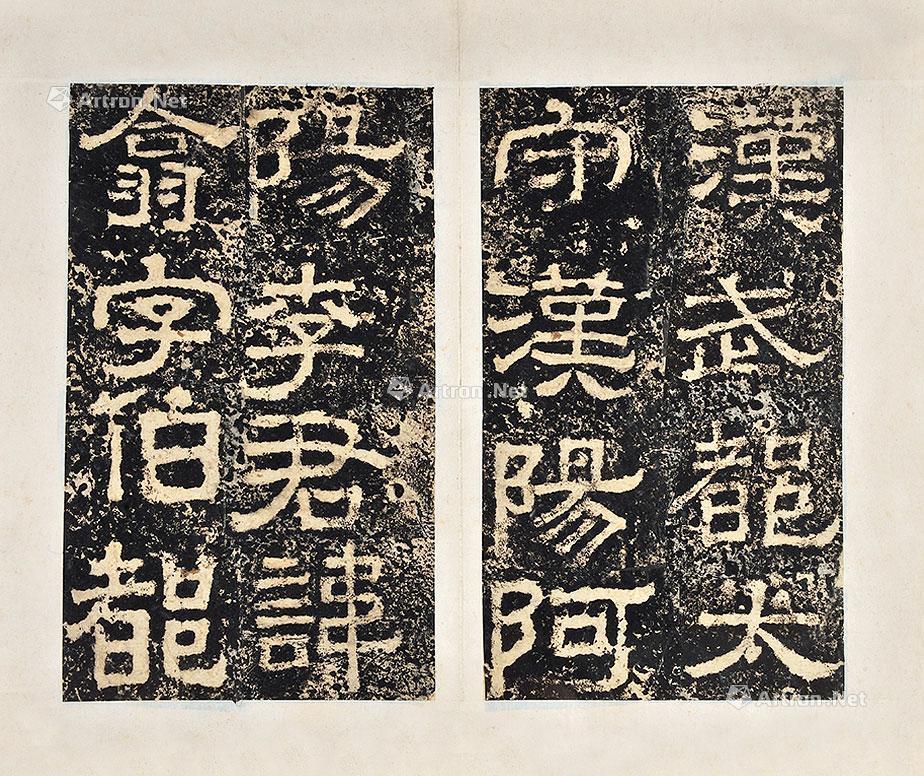 漢武都太
守漢陽阿
陽李君諱
翕字伯都
Artron.Net
Artron.Net
Artron.Net